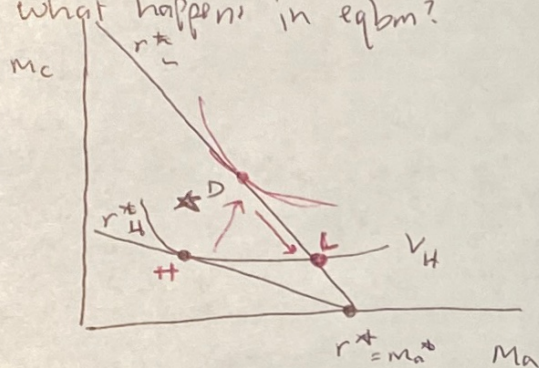 what happens in eqbm?
r*L
Mc
D
r*H
H
L
VH
r* = ma*
Ma